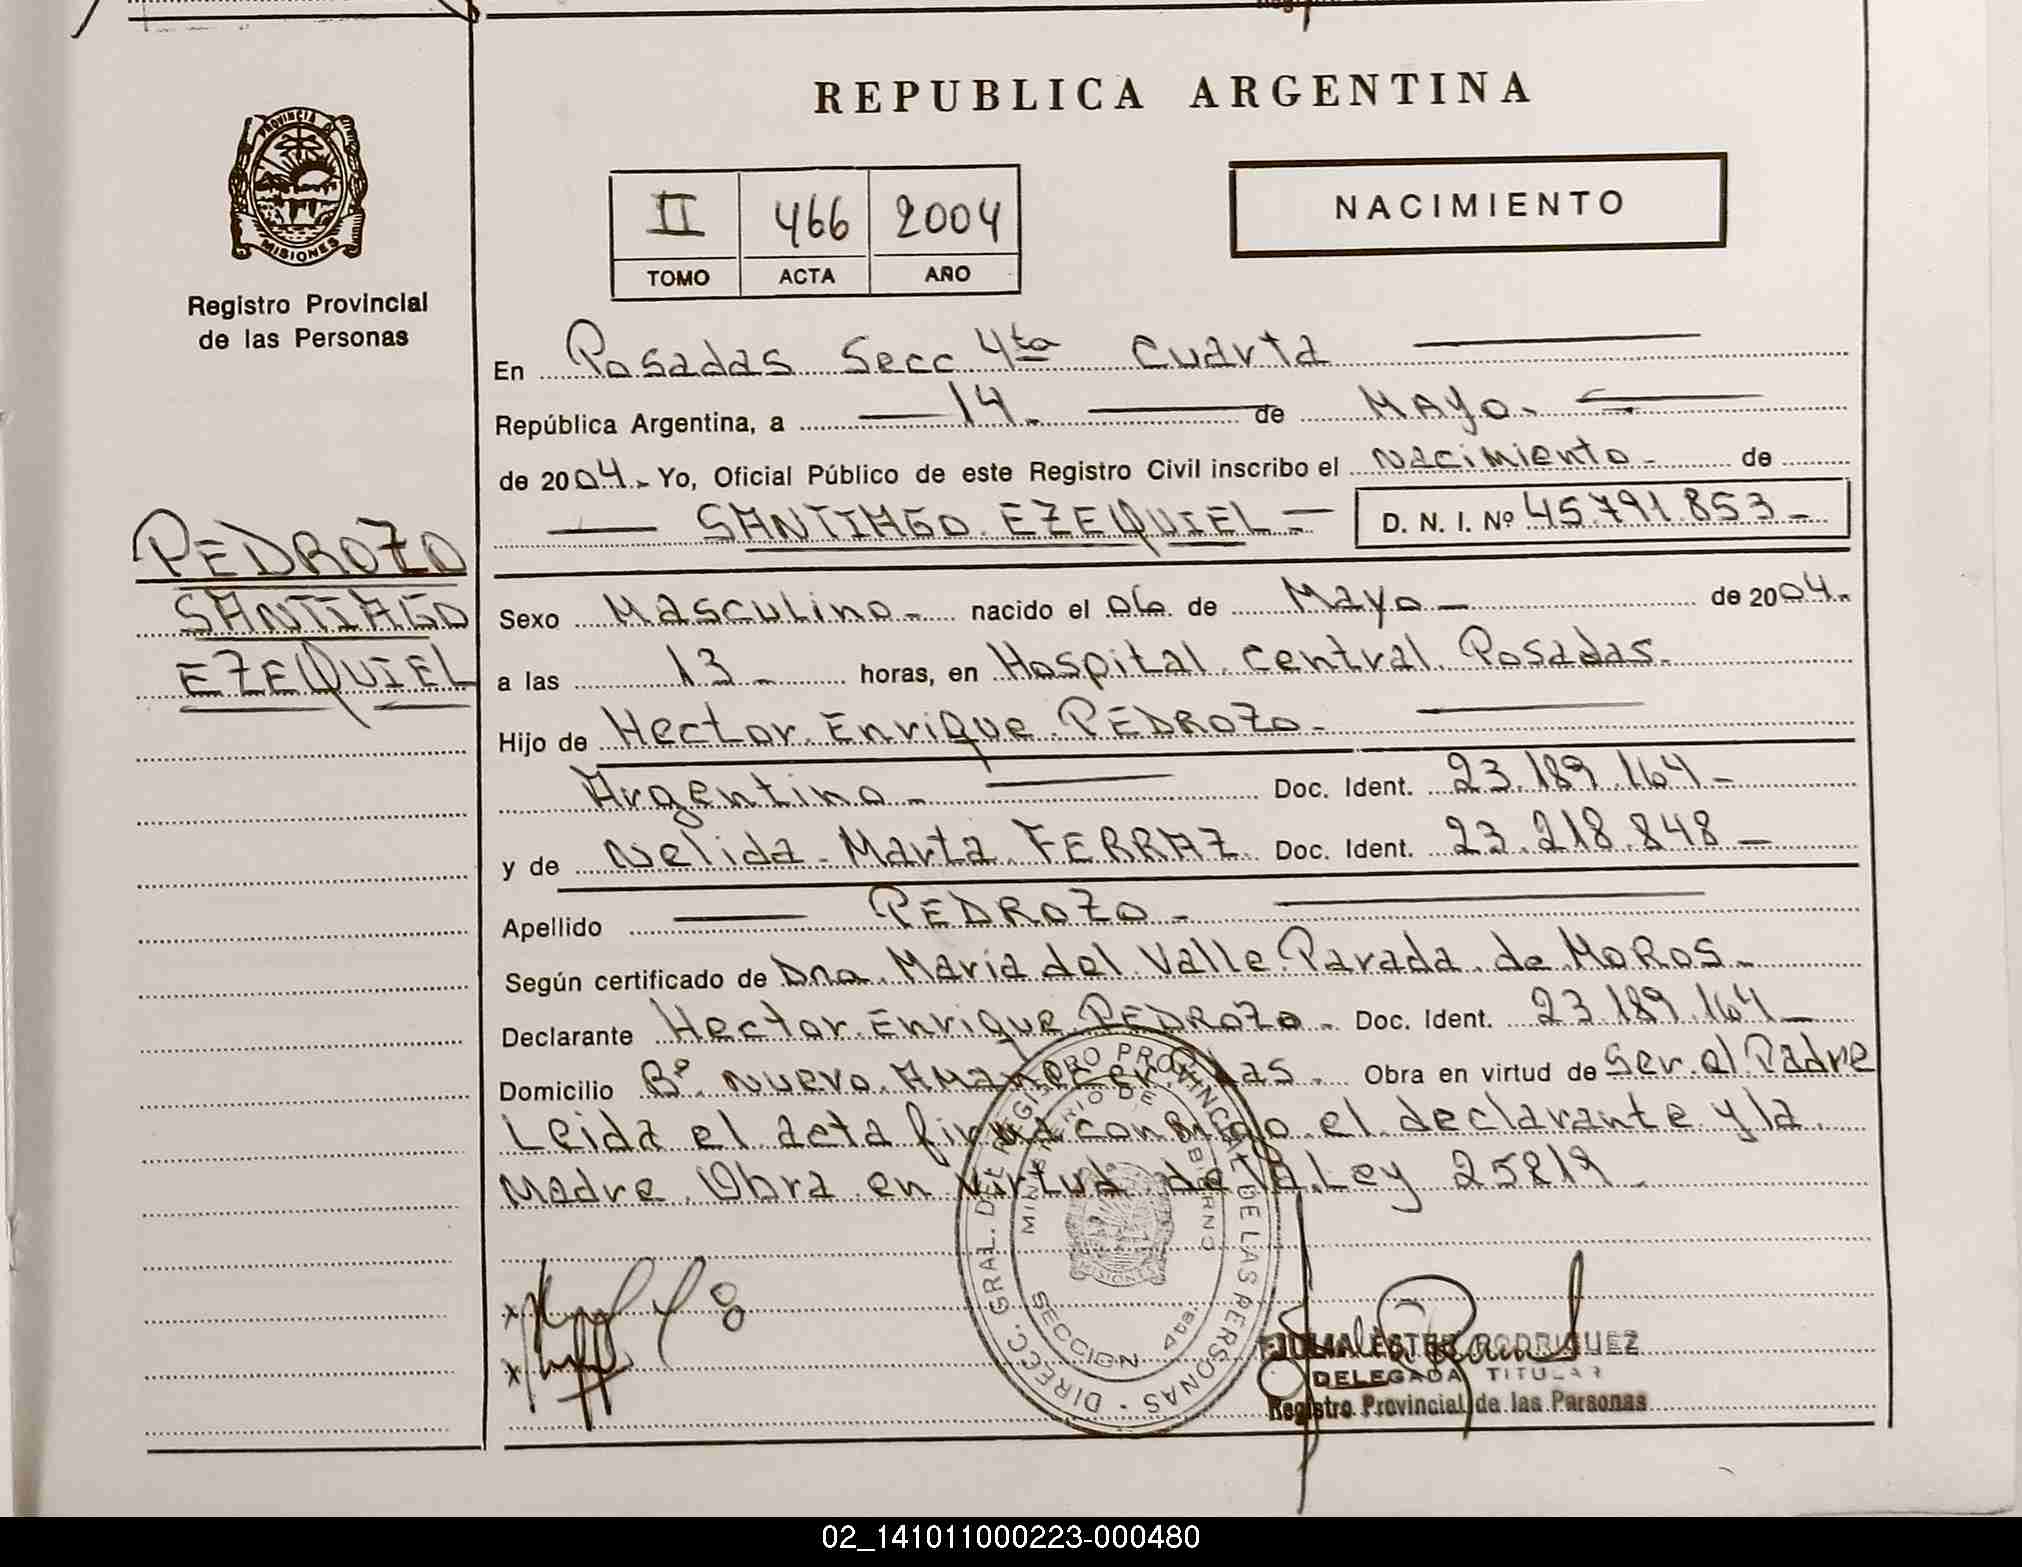 REPUBLICA ARGENTINA
PROVINCIA DE
MISIONES
Registro Provincial
de las Personas
II 466 2004
TOMO ACTA AÑO
NACIMIENTO
En Posadas Secc 4ta Cuarta
República Argentina, a 14. de Mayo.
de 2004. Yo, Oficial Público de este Registro Civil inscribo el Nacimiento de
SANTIAGO EZEQUIEL D. N. I. Nº 45.791.853
PEDROZO
SANTIAGO
EZEQUIEL
Sexo Masculino nacido el 06 de Mayo de 2004.
a las 13 horas, en Hospital Central Posadas.
Hijo de Hector Enrique PEDROZO
Argentino Doc. Ident. 23.189.164
y de Nelida Marta FERRAZ Doc. Ident. 23.218.848
Apellido PEDROZO
Según certificado de Dna. Maria del Valle Parada de MOROS
Declarante Hector Enrique PEDROZO Doc. Ident. 23.189.164
Domicilio Bº Nuevo Obra en virtud de Ser el Padre
Leida el acta firma conmigo el declarante y la
Madre Obra en virtud de la Ley 25819
DIRECC. GRAL. DEL REGISTRO PROVINCIAL DE LAS PERSONAS
MINISTERIO DE GOBIERNO
MISIONES
SECCION 4ta
ESTER RODRIGUEZ
DELEGADA TITULAR
Registro Provincial de las Personas
02_141011000223-000480